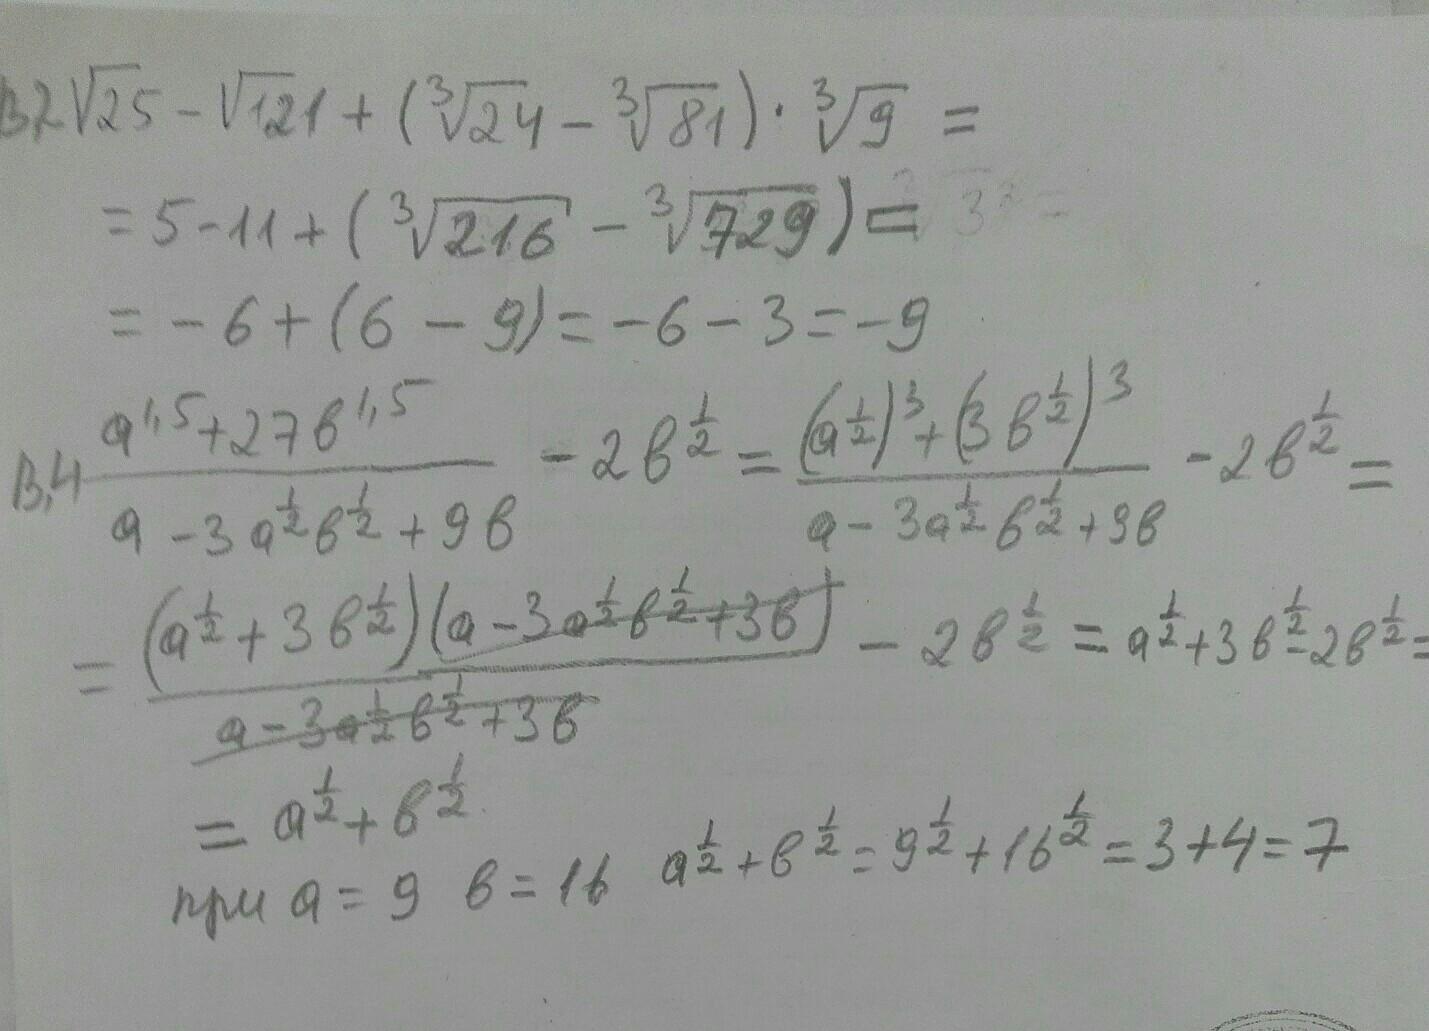 В2 √25 - √121 + (³√24 - ³√81) · ³√9 =
= 5 - 11 + (³√216 - ³√729) =
= - 6 + (6 - 9) = - 6 - 3 = - 9
В,4 (a^1,5 + 27в^1,5)/(a - 3a^½в^½ + 9в) - 2в^½ = ((a^½)³ + (3в^½)³)/(a - 3a^½в^½ + 9в) - 2в^½ =
= ((a^½ + 3в^½)(a - 3a^½в^½ + 3в))/(a - 3a^½в^½ + 3в) - 2в^½ = a^½ + 3в^½ - 2в^½ =
= a^½ + в^½.
при a = 9 в = 16 a^½ + в^½ = 9^½ + 16^½ = 3 + 4 = 7